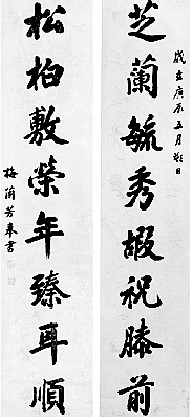 歲在庚辰五月朔日
芝蘭毓秀嘏祝膝前
松柏敷榮年臻耳順
梅蘭芳奉書